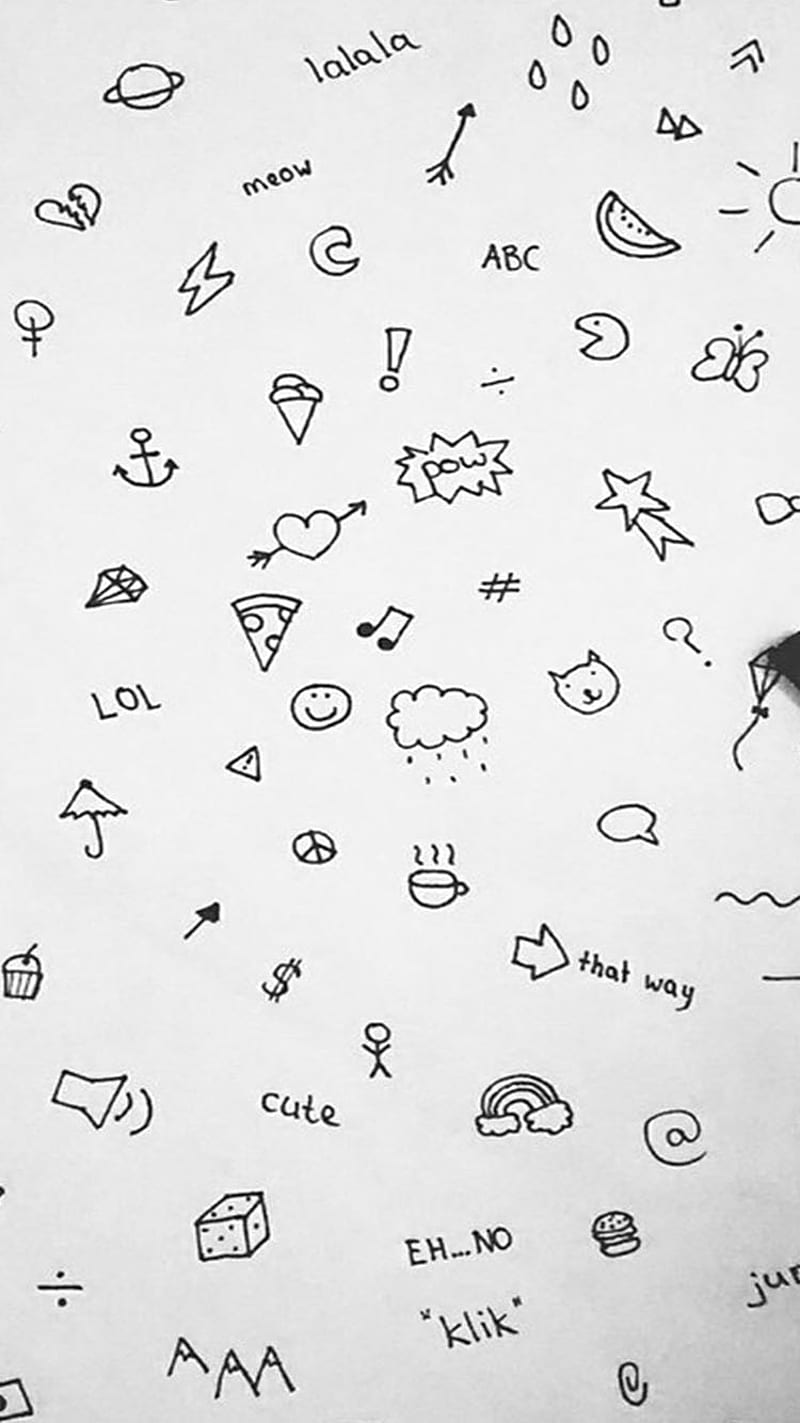 lalala
meow
ABC
!
÷
pow
#
?
LOL
!
$
that way
cute
@
EH...NO
÷
"klik"